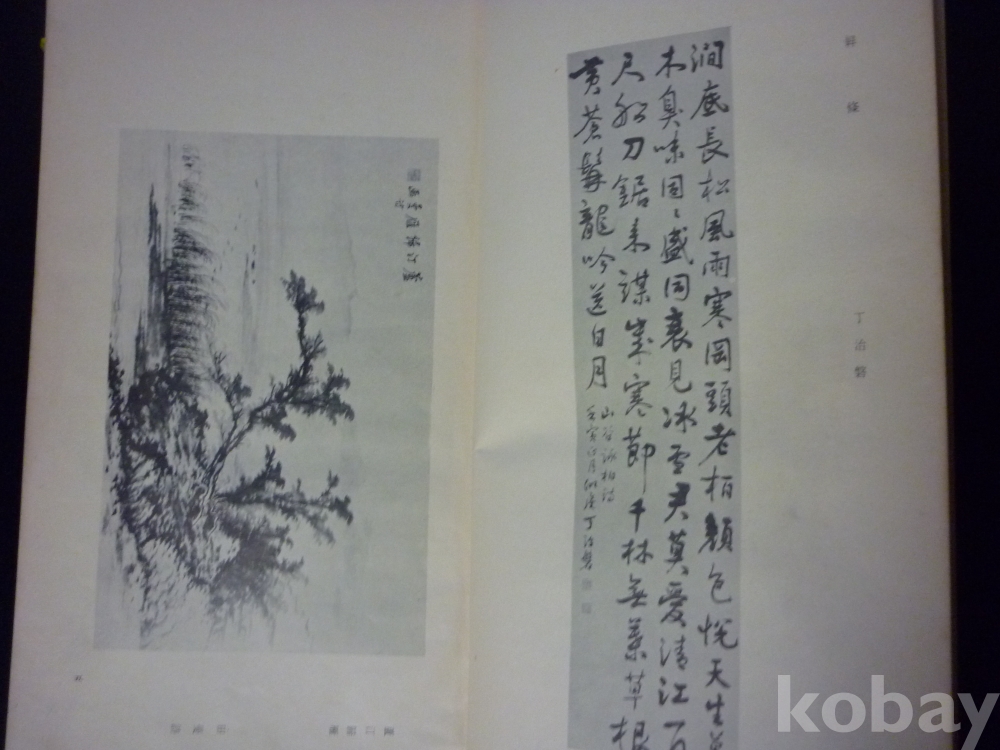 屏條
丁治磐
澗底長松風雨寒岡頭老柏顏色悅天生草
木臭味同〻盛同衰見冰雪君莫愛清江百
尺船刀鋸來謀歲寒節千林無葉草根
黃蒼髯龍吟送日月
山谷詠柏詩
壬寅正月 丁治磐
kobay